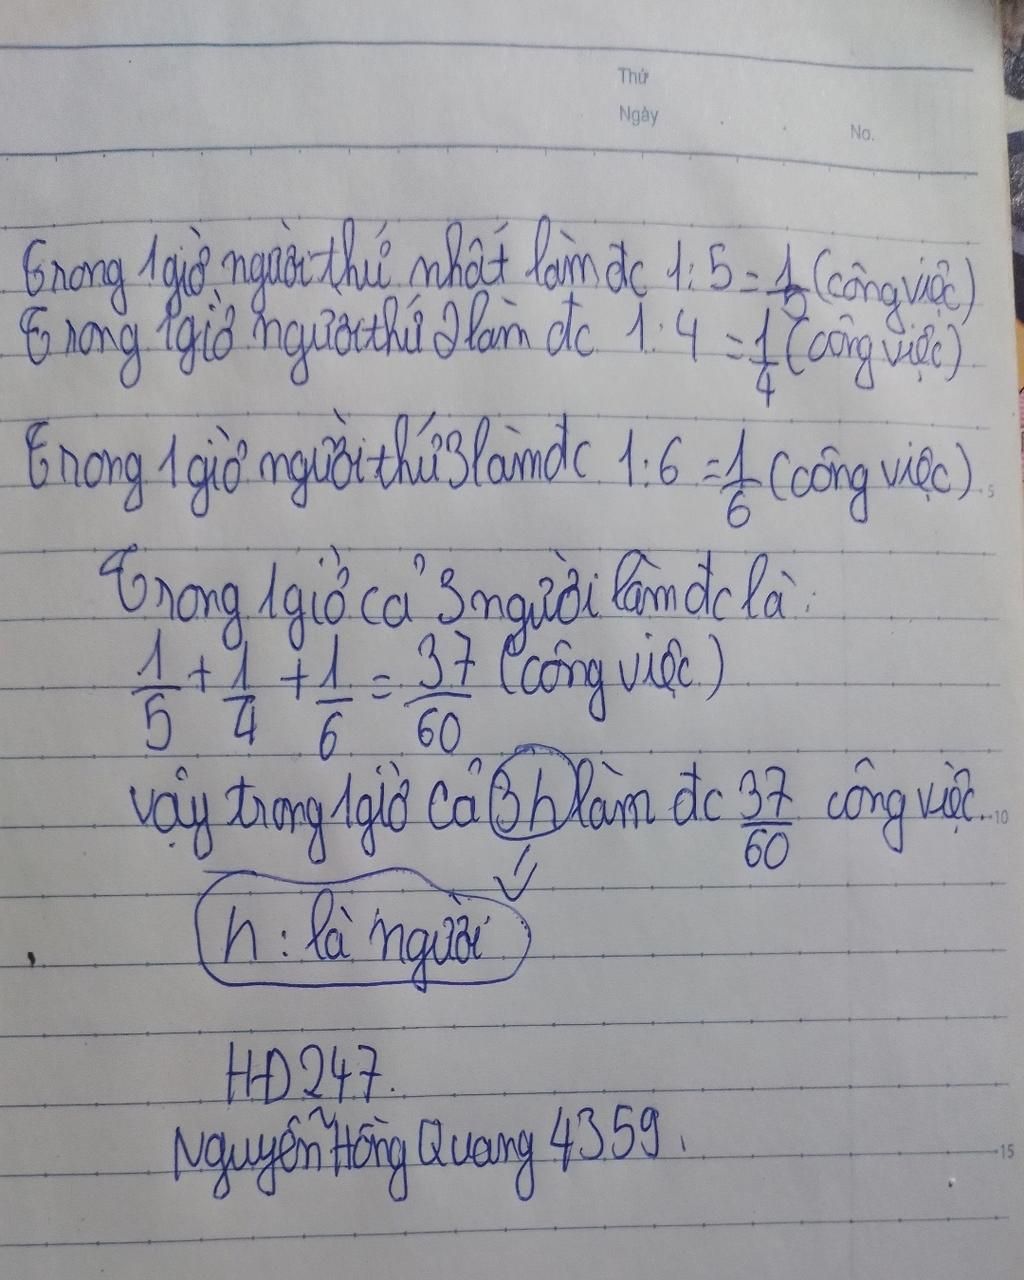 Thứ
Ngày
No.
Trong 1 giờ người thứ nhất làm đc 1 : 5 = 1/5 (công việc)
Trong 1 giờ người thứ 2 làm đc 1 : 4 = 1/4 (công việc)
Trong 1 giờ người thứ 3 làm đc 1 : 6 = 1/6 (công việc)
5
Trong 1 giờ cả 3 người làm đc là :
1/5 + 1/4 + 1/6 = 37/60 (công việc)
vậy trong 1 giờ cả 3 n làm đc 37/60 công việc.
10
n : là người
HĐ247.
Nguyễn Hồng Quang 4359.
15